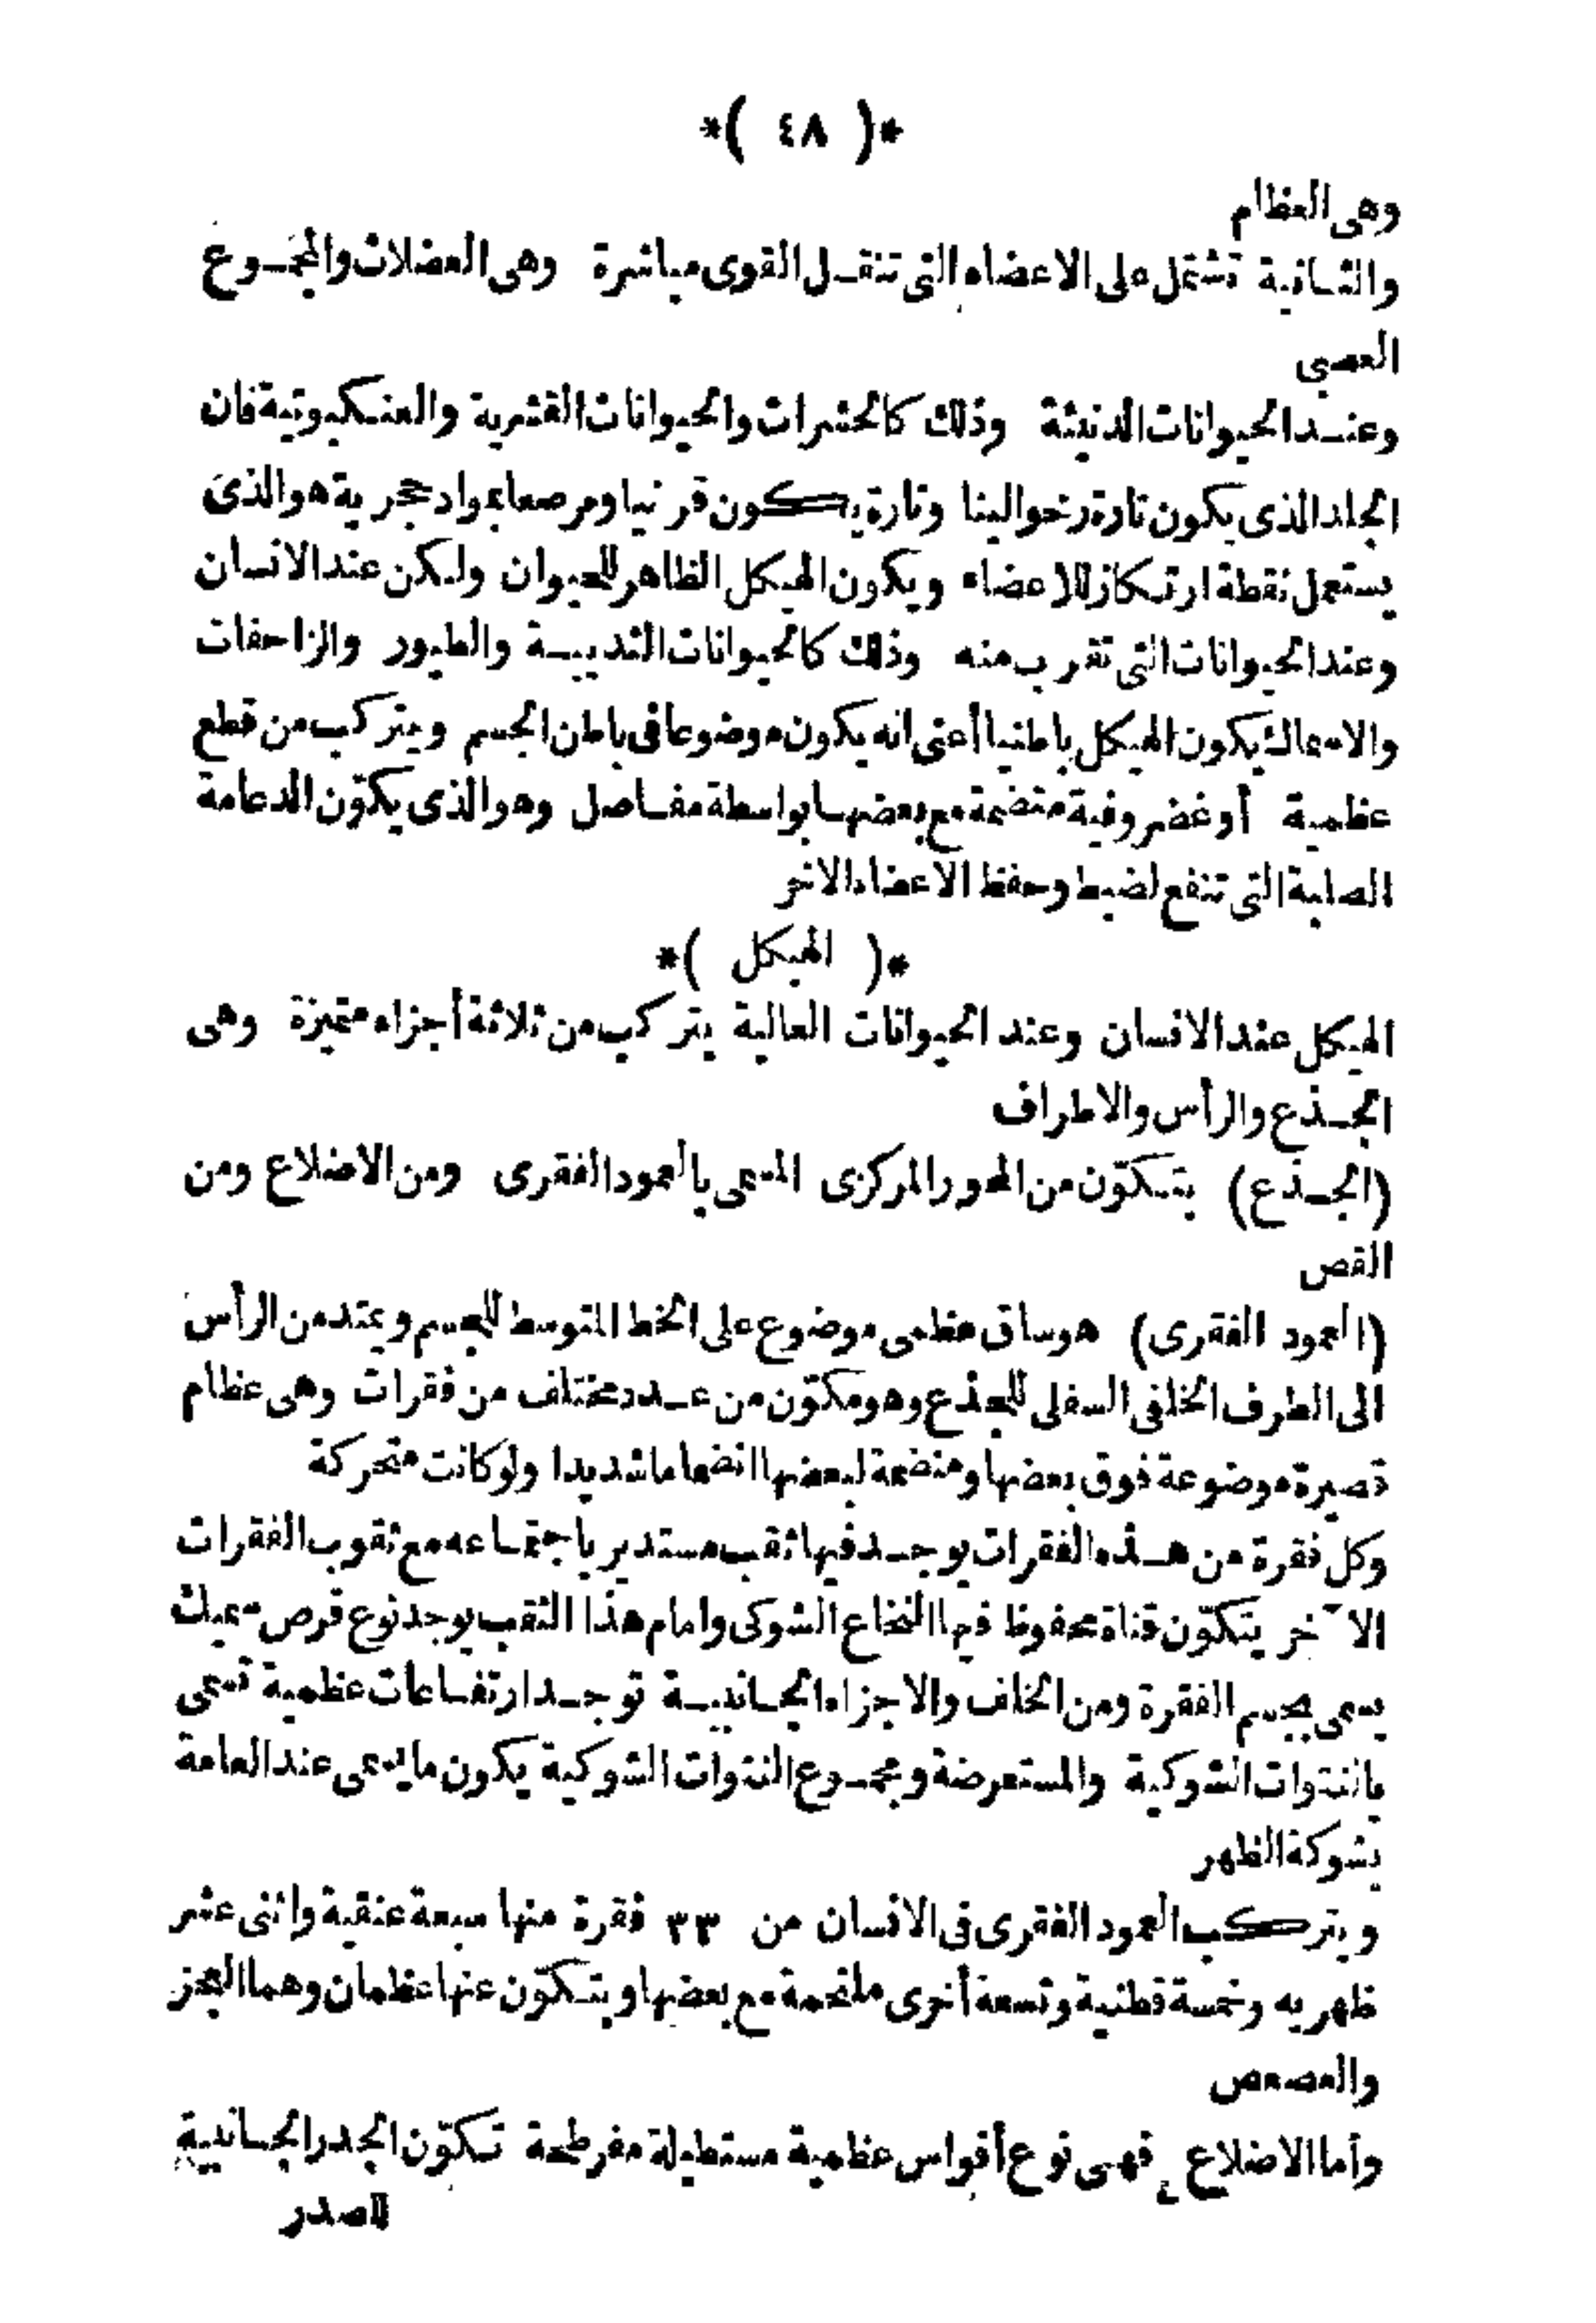 *( ٤٨ )*
وهى العظام
والثانية تشتمل على الاعضاء التى تنقل القوى مباشرة وهى العضلات والمجموع
العصبى
وعند الحيوانات الدنيئة وذلك كالحشرات والحيوانات القشرية والعنكبوتية فان
الجلد الذى يكون تارة رخوا لينا وتارة يكون قرنيا ومرصعا بمواد حجرية هو الذى
يستعمل نقطة ارتكاز للاعضاء ويكون الهيكل الظاهر للحيوان ولكن عند الانسان
وعند الحيوانات التى تقرب منه وذلك كالحيوانات الثدييـة والطيور والزاحفات
والاسماك يكون الهيكل باطنيا أعنى انه يكون موضوعا فى باطن الجسم ويتركب من قطع
عظمية أو غضروفية منضمة مع بعضها بواسطة مفاصل وهو الذى يكوّن الدعامة
الصلبة التى تنفع لضبط وحفظ الاعضاء الاخر
*( الهيكل )*
الهيكل عند الانسان وعند الحيوانات العالية يتركب من ثلاثة أجزاء متميزة وهى
الجذع والرأس والاطراف
(الجذع) يتكوّن من المحور المركزى المسمى بالعمود الفقرى ومن الاضلاع ومن
القص
(العمود الفقرى) هو ساق عظمى موضوع على الخط المتوسط للجسم ويمتد من الرأس
الى الطرف الخلفى السفلى للجذع وهو مكوّن من عدد مختلف من فقرات وهى عظام
قصيرة موضوعة فوق بعضها ومنضمة لبعضها انضماما شديدا ولو كانت متحركة
وكل فقرة من هذه الفقرات يوجد فيها ثقب مستدير باجتماعه مع ثقوب الفقرات
الآخر يتكوّن قناة محفوظا فيها النخاع الشوكى وامام هذا الثقب يوجد نوع قرص سميك
يسمى بجسم الفقرة ومن الخلف والاجزاء الجانبيـة توجد ارتفاعات عظمية تسمى
بالنتوات الشوكية والمستعرضة ومجموع النتوات الشوكية يكون ما يسمى عند العامة
بشوكة الظهر
ويتركب العمود الفقرى فى الانسان من ٣٣ فقرة منها سبعة عنقية واثنى عشر
ظهريه وخمسة قطنية وتسعة أخرى ملتحمة مع بعضها ويتكوّن عنها عظمان وهما العجز
والعصعص
وأما الاضلاع فهى نوع أقواس عظمية مستطيلة مفرطحة تكوّن الجدر الجانبية
للصدر